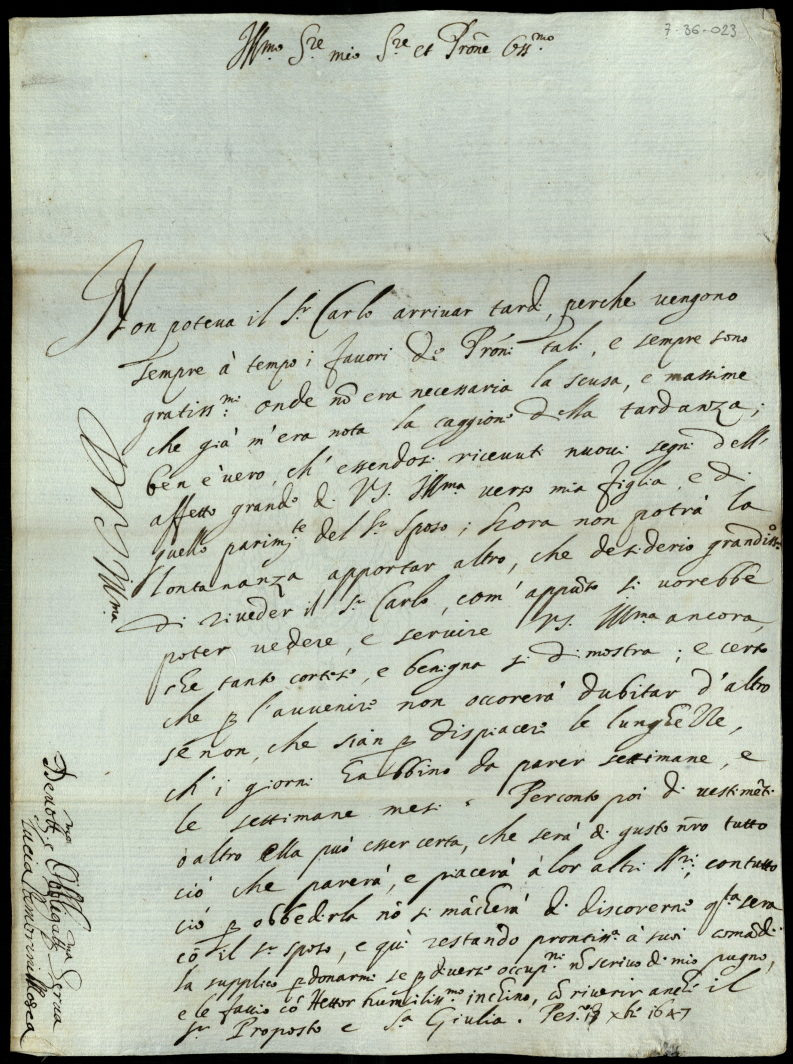 7-36-023
Illmo Sre mio Sre et Prone Ossmo
Non poteva il Sr Carlo arrivar tardi, perche vengono
sempre à tempo i favori di Proni tali, e sempre sono
gratissmi onde nō era necessaria la scusa, e massime
che già m'era nota la caggione della tardanza;
ben è vero, ch'essendosi ricevuti nuovi segni dell'
affetto grande di VS. Illma verso mia figlia, e di
quello parimte del Sr Sposo; hora non potrà la
lontananza apportar altro, che desiderio grandissmo
di riveder il Sr Carlo, com'appūto si vorebbe
poter vedere, e servire VS. Illma ancora,
che tanto cortese, e benigna si dimostra; e certo
che p l'avvenire non occorerà dubitar d'altro
se non, che sian p dispiacere le lunghezze,
ch'i giorni habbino da parer settimane, e
le settimane mesi. Perconto poi di vestimēti
ò altro ella può esser certa, che serà di gusto nro tutto
ciò che parerà, e piacerà à lor altri SSri; contutto
ciò p obbedirla nō si mācherà di discorerne qsta sera
cō il Sr sposo, e quì restando prontissa à suoi comādi
la supplico pdonarmi se p diverse occupni nō scrivo di mio pugno,
e le faccio cō Hettor humilissmo inchino, cō riverir anche il
Sr Proposto e Sra Giulia. Pes.o 13 xbre 1647
D VS Illma
Devottma et Obbligatma Serva
Lucia Mosca